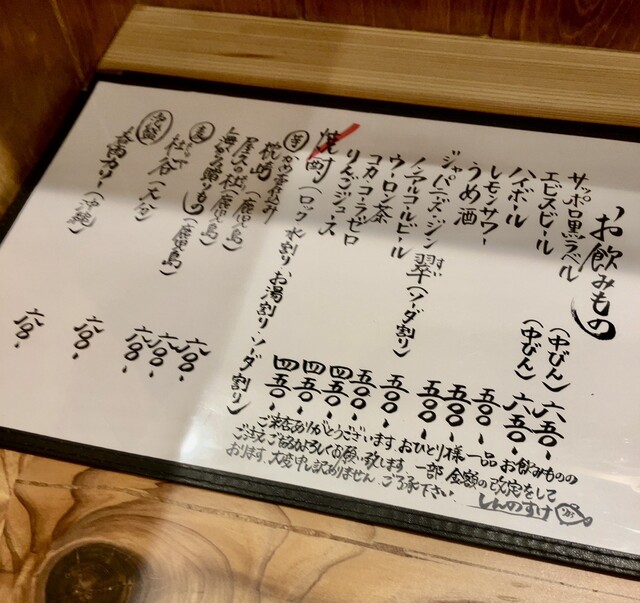 お飲みもの
サッポロ黒ラベル（中びん）六五〇
エビスビール（中びん）六五〇
ハイボール 五〇〇
レモンサワー 五〇〇
うめ酒 五〇〇
ジャパニーズ・ジン 翠（ソーダ割り）五五〇
ノンアルコールビール 五〇〇
ウーロン茶 四五〇
コカ・コーラゼロ 四五〇
りんごジュース 四五〇
焼酎（ロック・水割り・お湯割り・ソーダ割り）
芋 かめ壺仕込み
枕崎（鹿児島）六八〇
屋久の杜（鹿児島）六八〇
海からの贈りもの（鹿児島）六八〇
麦 杜谷（大分）六八〇
泡盛 春雨カリー（沖縄）六八〇
ご来店ありがとうございます。おひとり様一品お飲みものの
ご注文ごお願い致します。一部金額の改定をして
おります。大変申し訳ありません。ご了承下さい。
しんのすけ